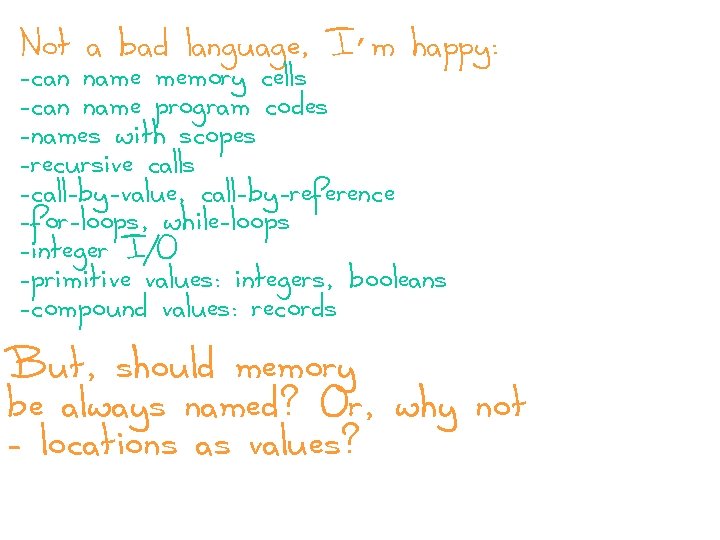 Not a bad language, I'm happy:
-can name memory cells
-can name program codes
-names with scopes
-recursive calls
-call-by-value, call-by-reference
-for-loops, while-loops
-integer I/O
-primitive values: integers, booleans
-compound values: records
But, should memory
be always named? Or, why not
- locations as values?